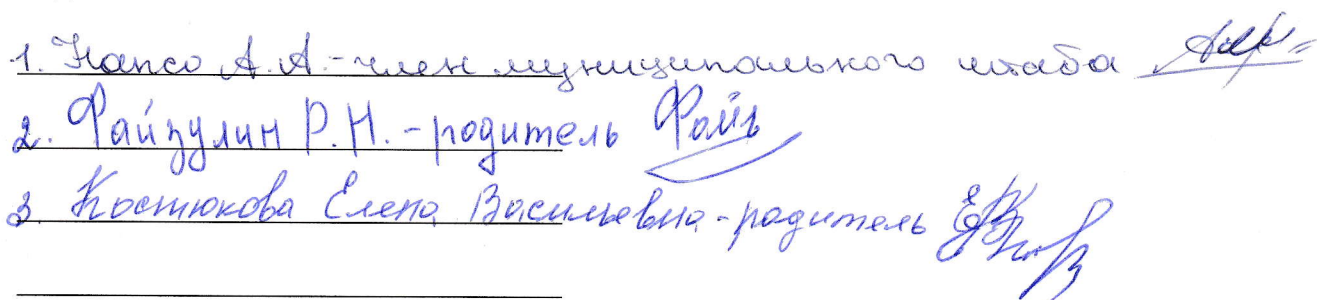 1. Напсо А.А. - член муниципального штаба
2. Файзулин Р.Н. - родитель Файз
3. Костюкова Елена Васильевна - родитель